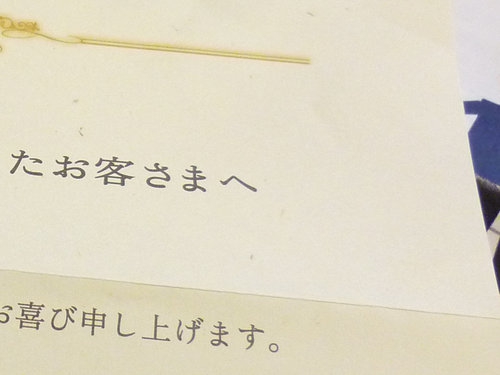 たお客さまへ
お喜び申し上げます。